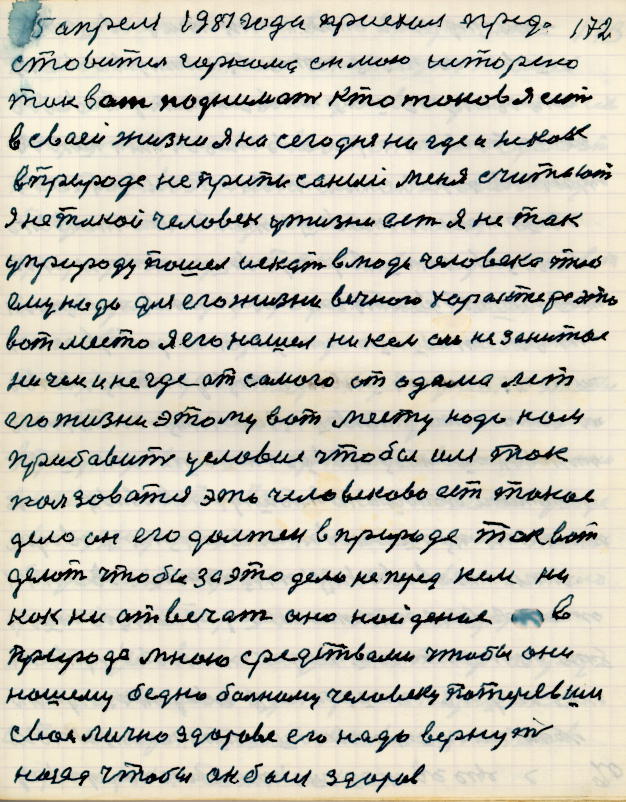 5 апреля 1981 года приехал пред- 172
ставител горкома он мою историю
так вот поднимат кто таков я ест
в своей жизни я на сегодня ни где и ни как
в природе не приписаный меня считают
я не такой человек у жизни ест я не так
у природу пошел искат в люди человека что
ему надо для его жизни вечного характера это
вот место я его нашел ни кем оно не занитое
ни чем и не где от самого от адама лет
его жизни этому вот месту надо нам
прибавит условие чтобы им так
ползоватся это человеково ест такое
дело он его должен в природе так вот
делат чтобы за это дело не перед кем ни
как ни отвечат оно найденое в
природе мною средствами чтобы они
нашему бедно болному человеку потерявши
свое лично здоровя его надо вернут
назад чтобы он был здоров